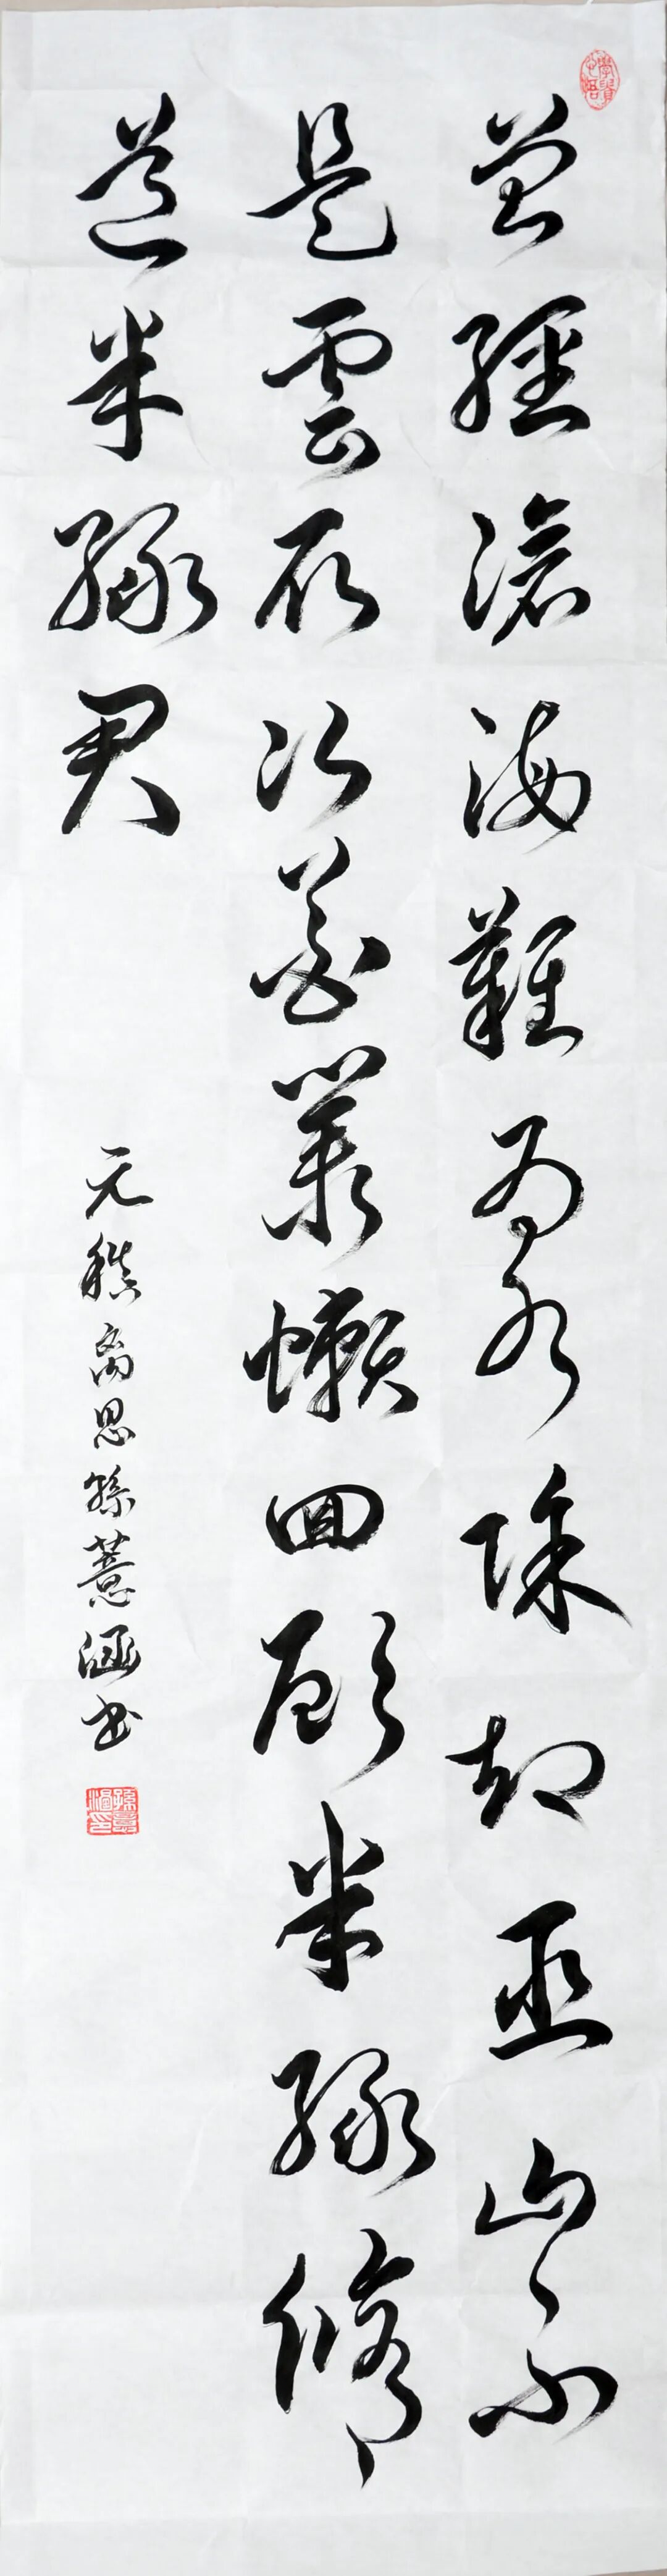 曾經滄海難為水除却巫山不
是雲取次花叢懶回顧半緣修
道半緣君
元稹离思孫薏涵书